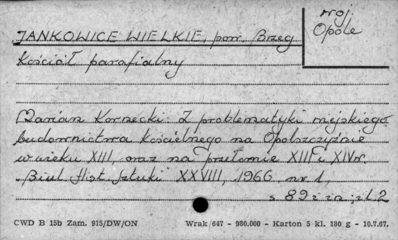 JANKOWICE WIELKIE, pow. Brzeg
woj.
Opole
Kościół parafialny
Marian Kornecki: Z problematyki wiejskiego
budownictwa kościelnego na Opolszczyźnie
w wieku XIII, oraz na przełomie XIII i XIV w.
Biul. Hist. Sztuki XXVIII, 1966 nr 1,
s. 89 i
CWD B 15b Zam. 915/DW/ON Wrak 647 - 980.000 - Karton 5 kl. 180 g - 10.7.67.